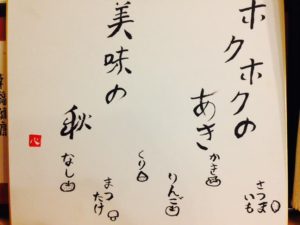 ホクホクの
あき
美味の
秋
さつま
いも
かき
りんご
くり
まつ
たけ
なし
心